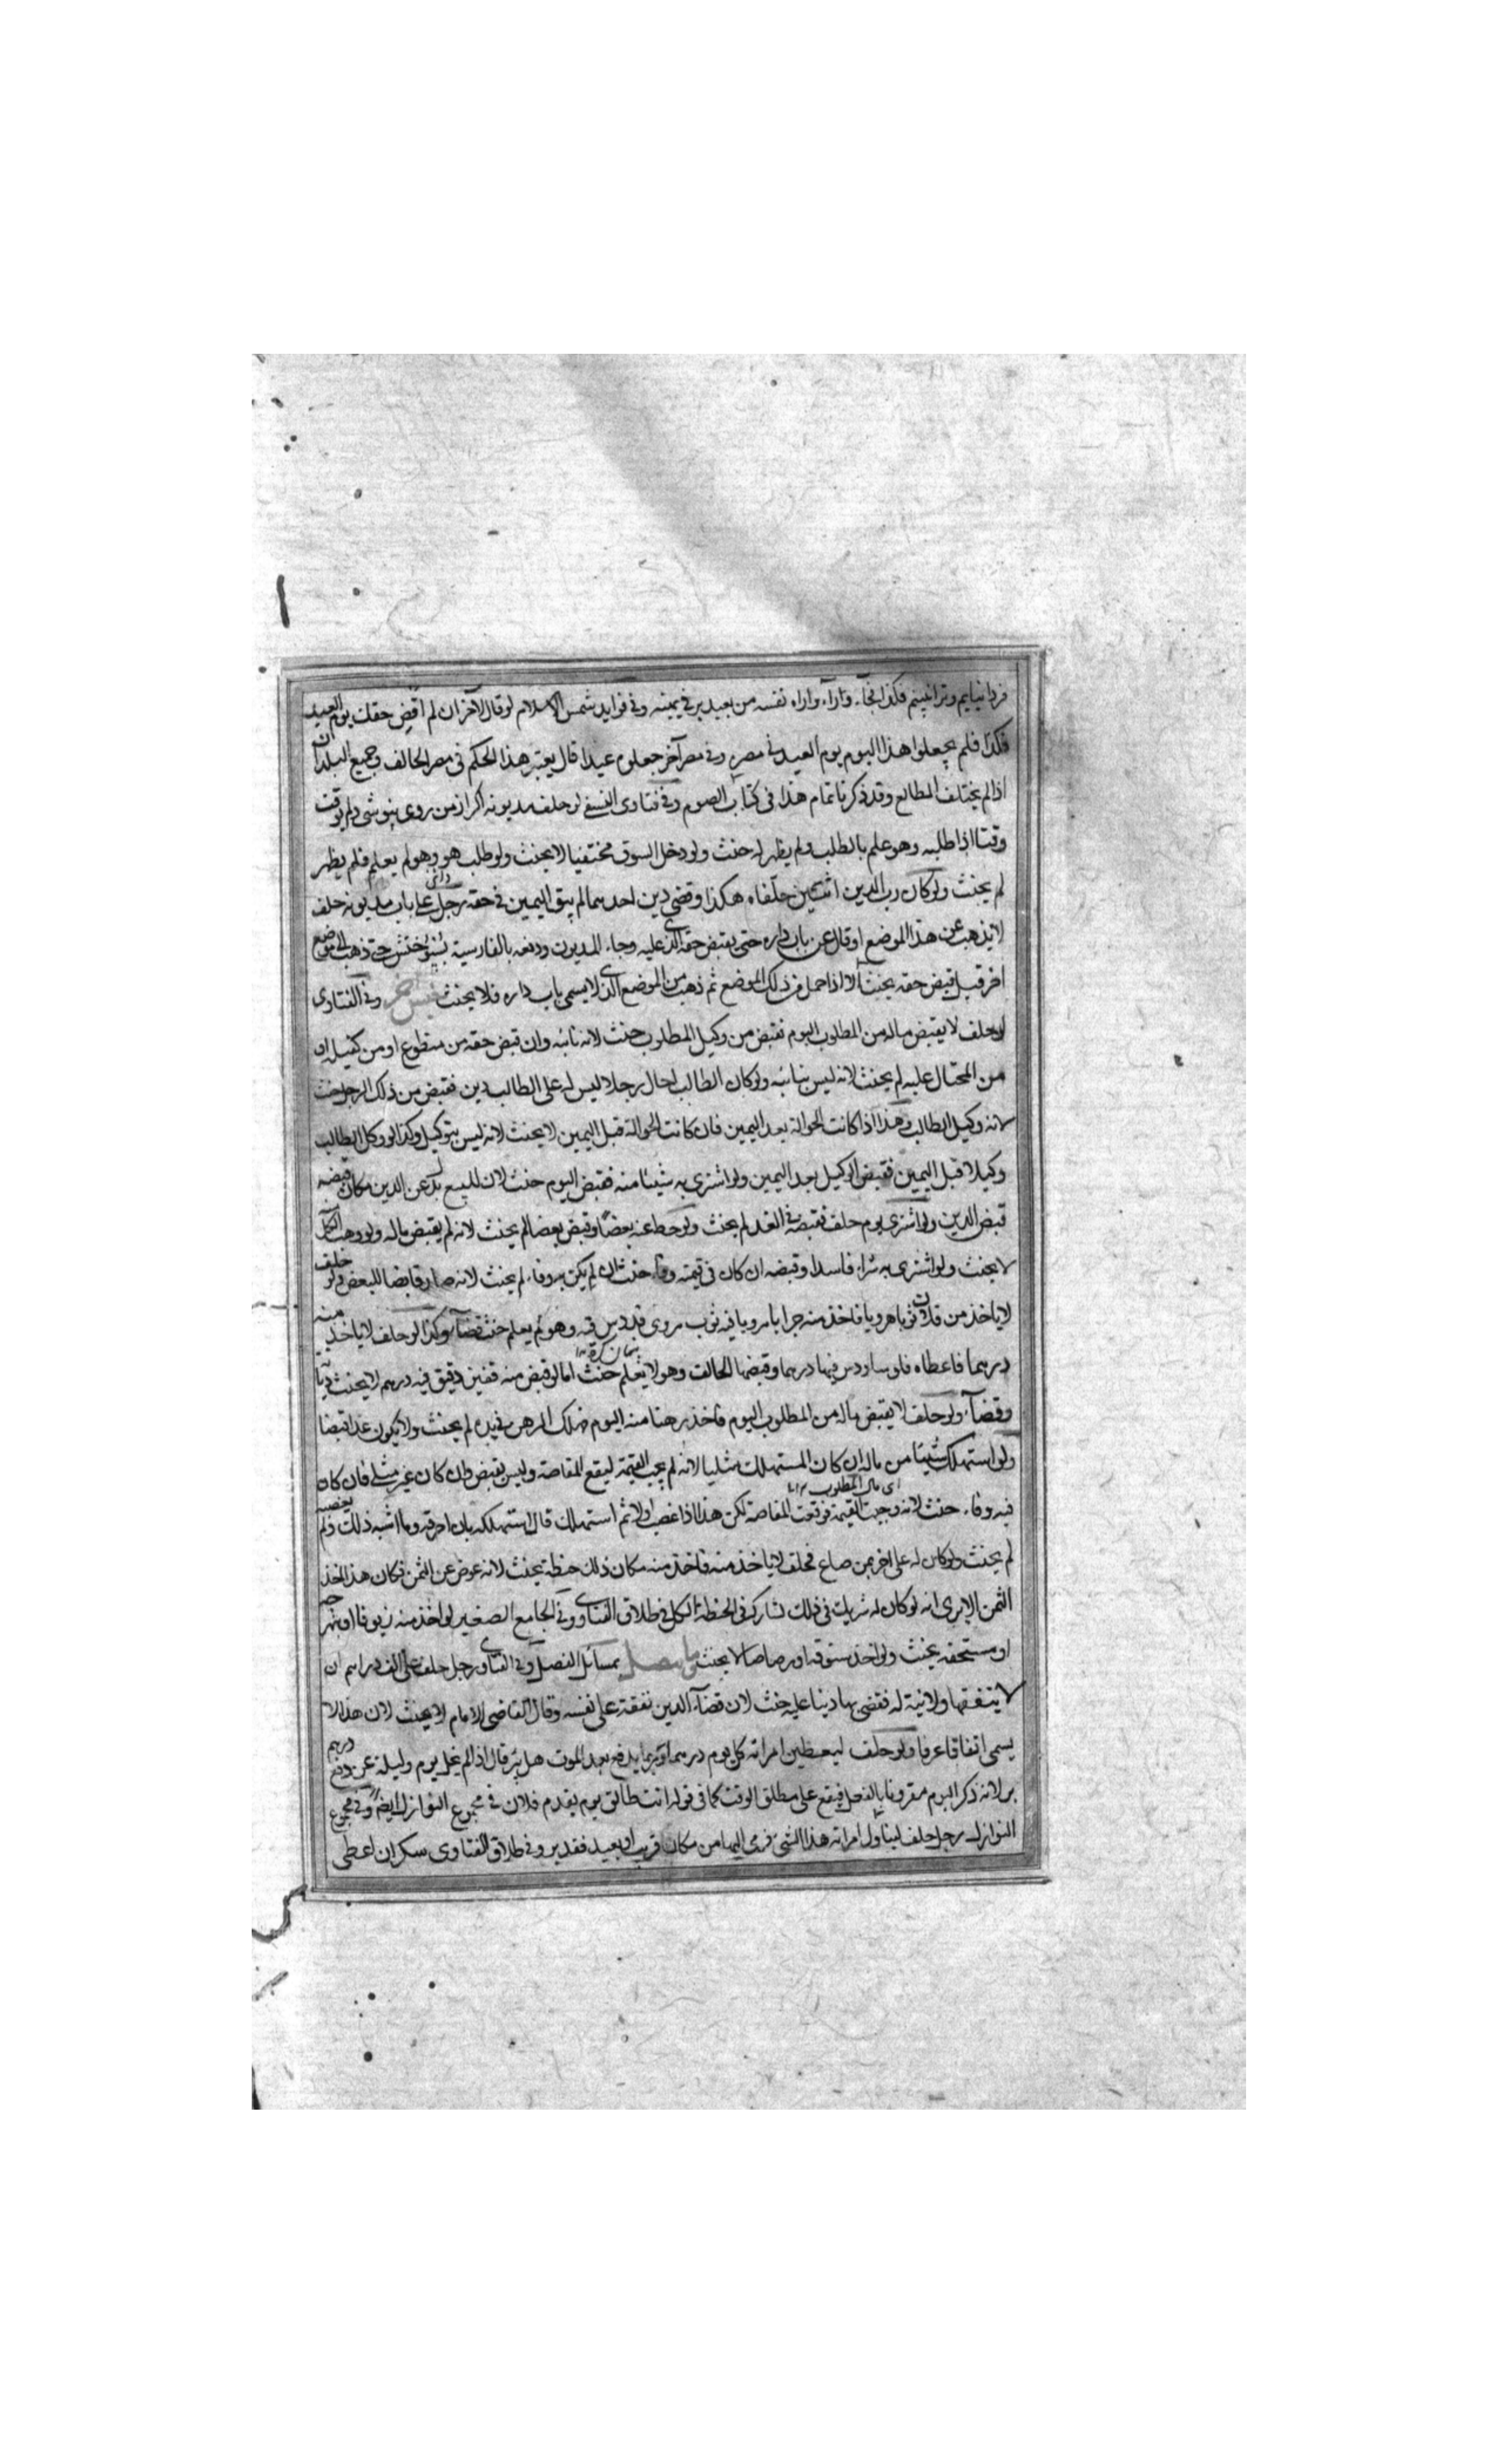 فردا نيايم وترا نبينم فكذا فجآء وارآه واراه نفسه من بعيد بر في يمينه وفي فوايد شمس الاسلام لو قال لآخر ان لم اقض حقك يوم العيد
فكذا فلم يجعلوا هذا اليوم يوم العيد في مصر وفي مصر آخر جعلوه عيدا قال يعتبر هذا الحكم في مصر الحالف وجميع البلدان
اذا لم يختلف المطالع وقد ذكرنا تمام هذا في كتاب الصوم وفي فتاوى النسفي لو حلف مديونه اكر از من روى بپوشى ولم يوقت
وقتا اذا طلبه وهو علم بالطلب ولم يظهر له حنث ولو دخل السوق مختفيا لا يحنث ولو طلب هو وهو لم يعلم فلم يظهر
لم يحنث ولو كان رب الدين اثنين حلفاه هكذا وقضى دين احدهما لم يبق اليمين في حقه رجل على باب مديونه حلف
لا يذهب عن هذا الموضع او قال عن باب داره حتى يقبض حقه الذي عليه وجاء المديون ودفعه بالفارسية حتى ذهب الى موضع
اخر قبل قبض حقه يحنث الا اذا حمل من ذلك الموضع ثم ذهب من الموضع الذي لا يسمى باب داره فلا يحنث وفي الفتاوى
لو حلف لا يقبض ماله من المطلوب اليوم فقبض من وكيل المطلوب حنث لانه نائبه وان قبض حقه من متطوع او من كفيله او
من المحتال عليه لم يحنث لانه ليس بنائبه ولو كان الطالب احال رجلا ليس له على الطالب دين فقبض من ذلك الرجل حنث
لانه وكيل الطالب وهذا اذا كانت الحوالة بعد اليمين فان كانت الحوالة قبل اليمين لا يحنث لانه ليس بتوكيل وكذا لو وكل الطالب
وكيلا قبل اليمين فقبض الوكيل بعد اليمين ولو اشترى به شيئا منه فقبض اليوم حنث لان للمبيع بدل عن الدين فكان قبضه
قبض الدين ولو اشترى يوم حلف فقبضه في الغد لم يحنث ولو حط عنه بعضا وقبض بعضا لم يحنث لانه لم يقبض ماله ولو وهب الكل
لا يحنث ولو اشترى به شراء فاسدا وقبضه ان كان في قيمته وفاء حنث وان لم يكن به وفاء لم يحنث لانه صار قابضا للبعض ولو حلف
لا ياخذ من فلان ثوبا هرويا فاخذ منه جرابا مرويا فيه ثوب مروى قد دس فيه وهو لم يعلم حنث قضآء وكذا لو حلف لا ياخذ منه
درهما فاعطاه فلوسا ودس فيها درهما وقبضها الحالف وهو لا يعلم حنث اما لو قبض منه قفيز دقيق فيه درهم لا يحنث ديانة
وقضآء ولو حلف لا يقبض ماله من المطلوب اليوم فاخذ رهنا منه اليوم فهلك الرهن في يده لم يحنث ولا يكون هذا قبضا
ولو استهلك شيئا من ماله ان كان المستهلك مثليا لانه لم يجب القيمة ليقع المقاصة وليس بقبض وان كان غير مثلي فان كان
اى مال المطلوب
فيه وفاء حنث لانه وجبت القيمة فوقعت المقاصة لكن هذا اذا غصب اولا ثم استهلك قال استهلكه بان احرقه وما اشبه ذلك ولم يغصبه
لم يحنث ولو كان له على اخر ثمن صاع فحلف لا ياخذ منه فاخذ منه مكان ذلك حنطة يحنث لانه عوض عن الثمن فكان هذا اخذ
الثمن الا يرى انه لو كان له شريك في ذلك لشاركه في الحنطة الكل في طلاق الفتاوى وفي الجامع الصغير لو اخذ منه زيوفا او نبهرجه
او مستحقه يحنث ولو اخذ ستوقة او رصاصا لا يحنث بمسائل الفصل وفي الفتاوى رجل حلف على الف دراهم ان
لا ينفقها ولا نية له فقضى بها دينا عليه حنث لان قضآء الدين نفقة على نفسه وقال القاضي الامام لا يحنث لان هذا لا
يسمى انفاقا عرفا ولو حلف ليعطين امراته كل يوم درهما يدفع بعد الموت هل بر قال اذا لم يخل يوم وليلة عن دفع درهم
بر لانه ذكر اليوم مقرونا بالفعل فيقع على مطلق الوقت كما في قوله انت طالق يوم يقدم فلان في مجموع النوازل ايضا وفي مجموع
النوازل رجل حلف ليناول امراته هذا الشئ فرمى اليها من مكان قريب او بعيد فقد بر وفي طلاق الفتاوى سكران اعطى